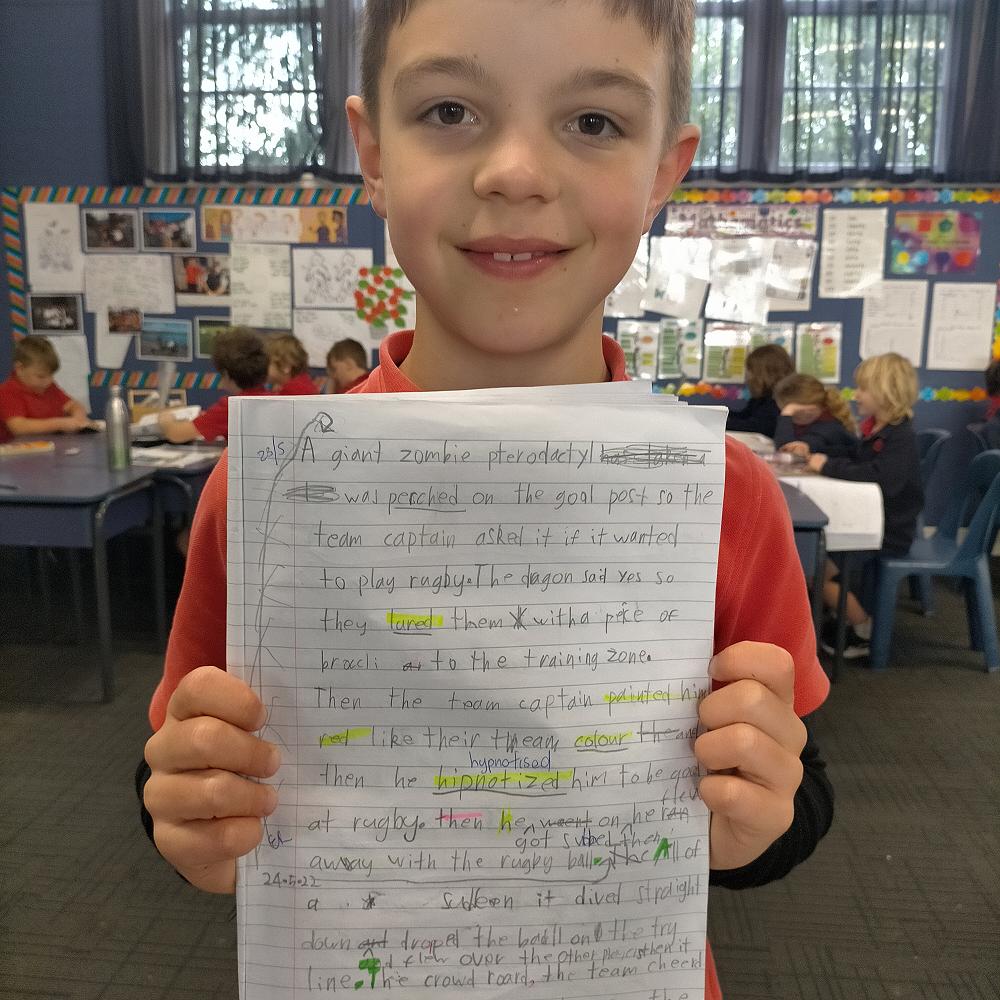 23/5 A giant zombie pterodactyl
was perched on the goal post so the
team captain asked it if it wanted
to play rugby. The dragon said yes so
they lured them with a peice of
broccli to the training zone.
Then the team captain painted him
red like their tream colour the and
hypnotised
then he hipnotized him to be good
flew
at rugby. then he went on he ran
got subbed then
away with the rugby ball. All of
24.5.22
a sudden it dived straight
down and droped the ball on the try
flew over the other then it
line. The crowd roard, the team cheerd
the